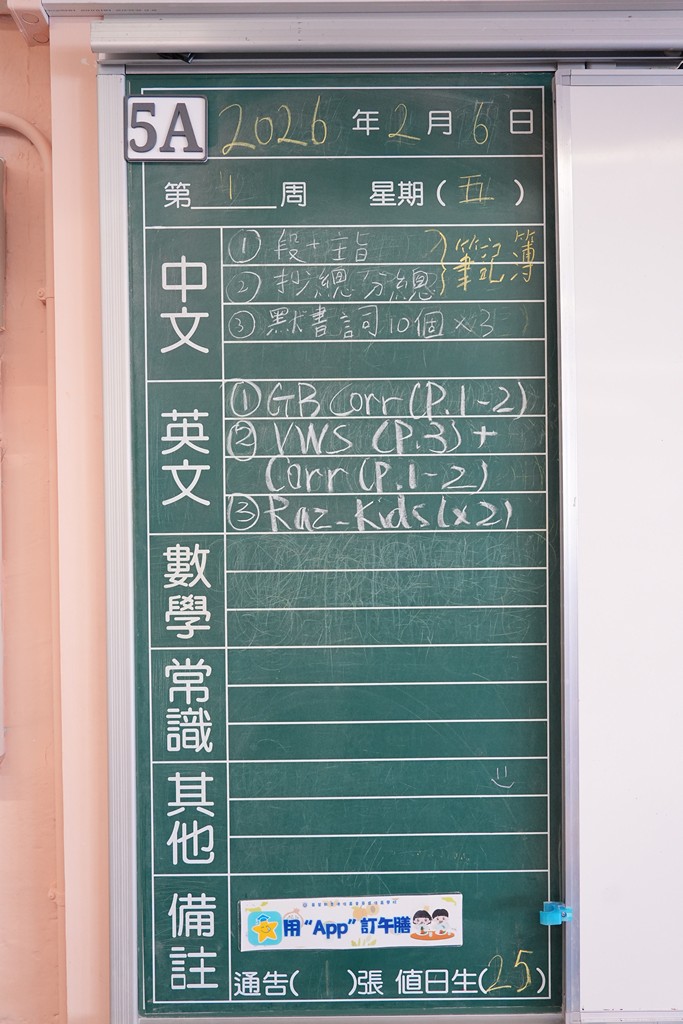 5A
2026 年 2 月 6 日
第 1 周 星期 ( 五 )
中文
① 段+主旨
② 抄總分總
} 筆記簿
③ 默書詞10個 x3
英文
① GB Corr (P.1-2)
② VWS (P.3) +
Corr (P.1-2)
③ Raz-Kids (x2)
數學
常識
其他
備註
用 "App" 訂午膳
通告( )張 值日生(25)